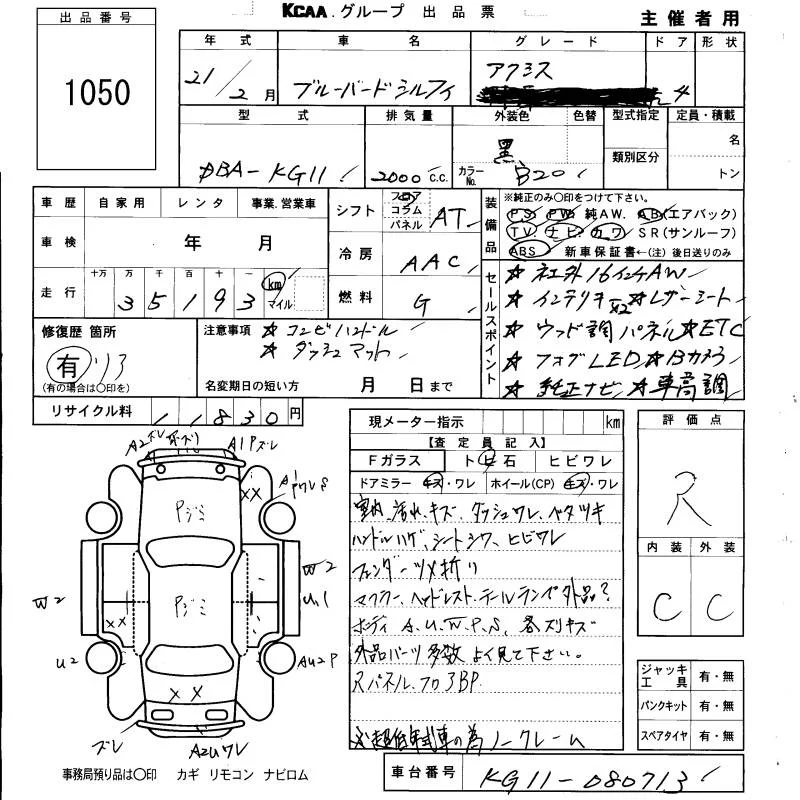 KCAA.グループ 出品票
主催者用
出品番号
1050
年式 車名 グレード ドア 形状
21/2月 ブルーバードシルフィ アクシス 4
型式 排気量 外装色 色替 型式指定 定員・積載
DBA-KG11 2000 c.c. 黒 カラーNo. B20 類別区分 名
トン
車歴 自家用 レンタ 事業.営業車
車検 年 月
走行 十万 万 千 百 十 一
35193 km マイル
シフト フロア コラム パネル AT
冷房 AAC
燃料 G
装備品
※純正のみ〇印をつけて下さい。
PS PW 純AW. AB(エアバック)
TV ナビ カワ SR(サンルーフ)
ABS 新車保証書←(注)後日送りのみ
セールスポイント
★社外16インチAW
★インテリキーx2 ★レザーシート
★ウッド調パネル ★ETC
★フォグLED ★Bカメラ
★純正ナビ ★車高調
修復歴 箇所
有 リア
(有の場合は〇印を)
注意事項 ★コンビハンドル
★ダッシュマット
名変期日の短い方 月 日まで
リサイクル料 11830円
現メーター指示 km
【査定員記入】
Fガラス トビ石 ヒビワレ
ドアミラー キズ・ワレ ホイール(CP) キズ・ワレ
室内、汚れ、キズ、ダッシュワレ、ベタツキ
ハンドルハゲ、シートシワ、ヒビワレ
フェンダーツメ折り
マフラー、ヘッドレスト、テールランプ外品?
ボディ A.U.W.P.S、各スリキズ
外品パーツ多数 よく見て下さい。
Rパネル、フロアBP.
※超低年式車の為ノークレーム
評価点
R
内装 外装
C C
ジャッキ工具 有・無
パンクキット 有・無
スペアタイヤ 有・無
A2ズレ A1Pズレ
A1
XX
Pジミ
W2
U1
W2
Pジミ
XX
U2
AU2P
XX
ズレ
A2Uワレ
事務局預り品は〇印 カギ リモコン ナビロム
車台番号 KG11-080713